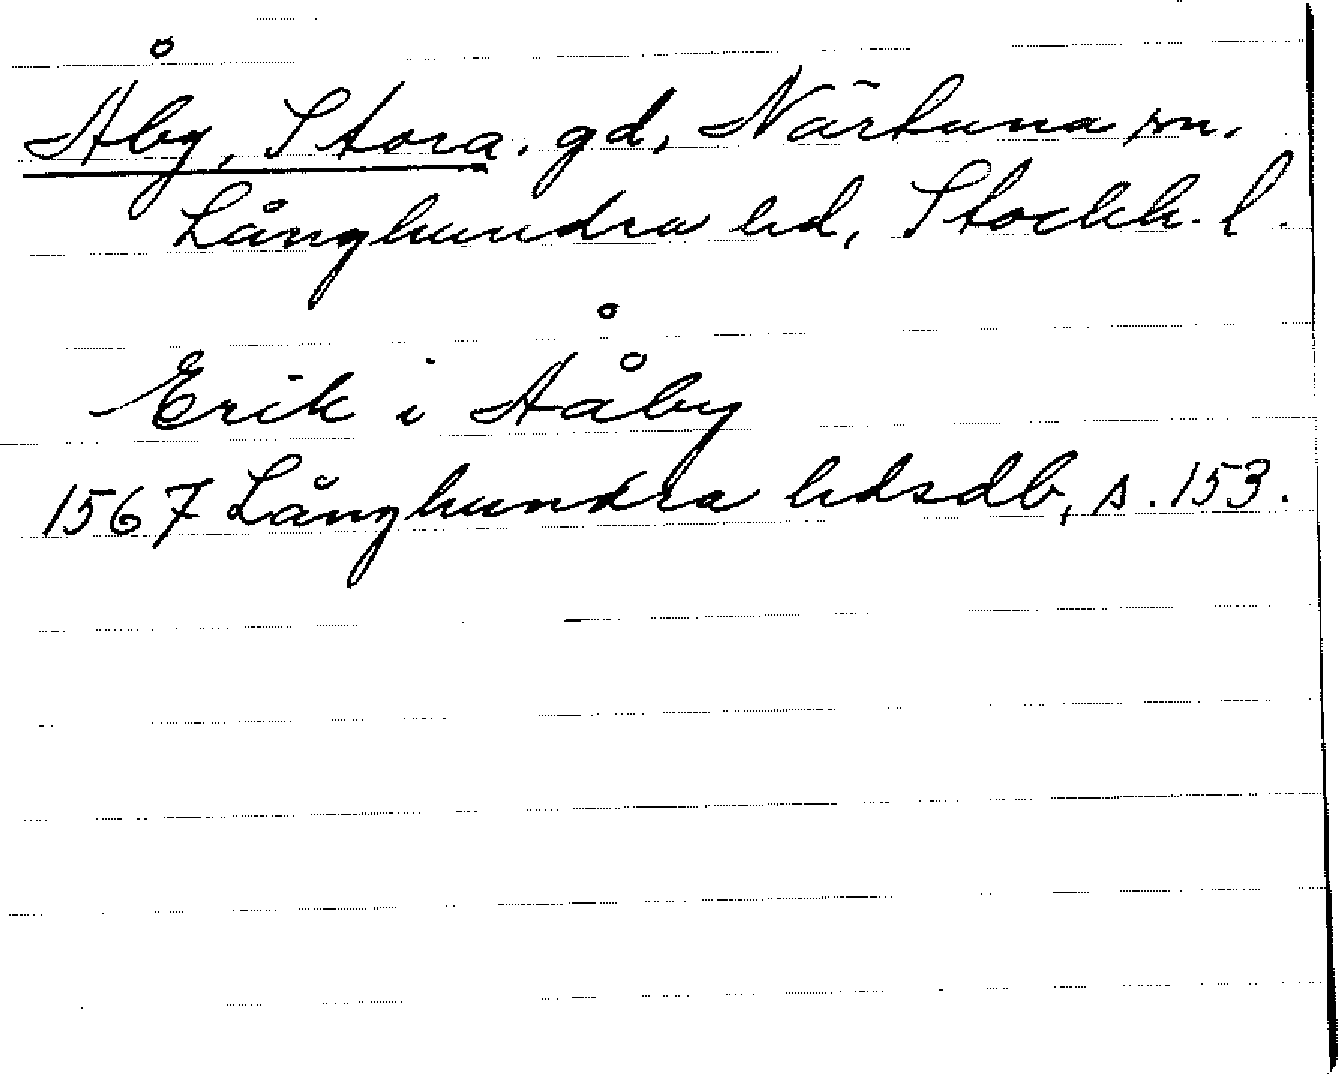 Åby, Stora. gd, Närtuna sn.
Långhundra hd, Stockh. l.
Erik i Ååby
1567 Långhundra hdsdb, s. 153.